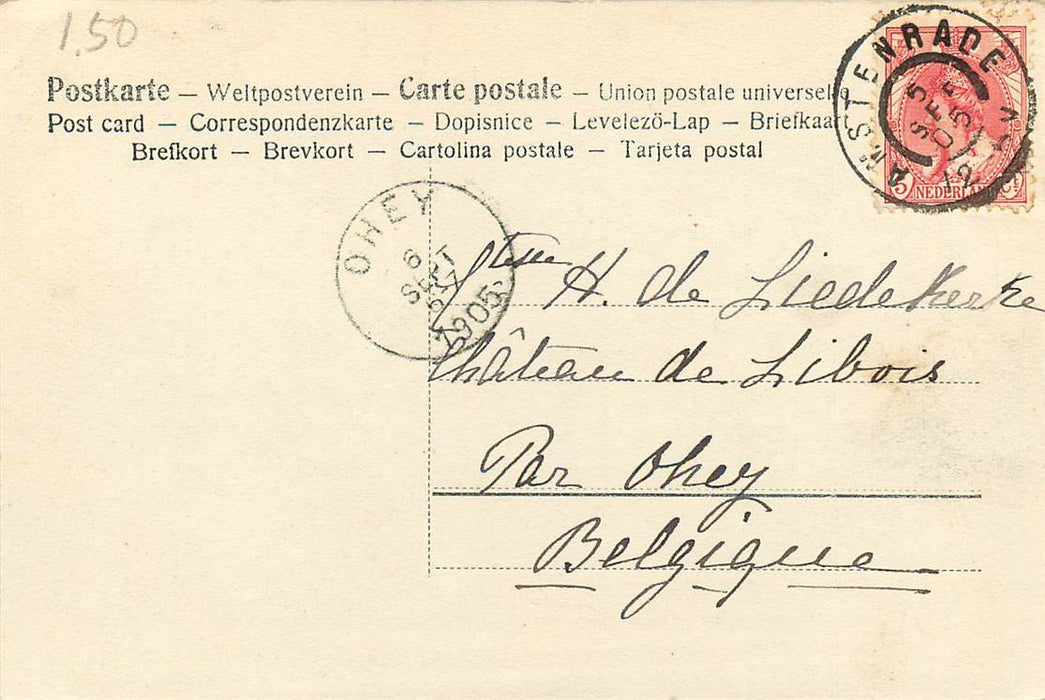 1.50
Postkarte — Weltpostverein — Carte postale — Union postale universelle
Post card — Correspondenzkarte — Dopisnice — Levelező-Lap — Briefkaart
Brefkort — Brevkort — Cartolina postale — Tarjeta postal
AMSTENRADE
5 SEP 05
12
5 NEDERLAND CT
OHEY
6
SEPT
1905
Ctesse H. de Liedekerke
Château de Libois
Par Ohey
Belgique